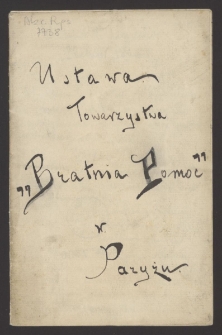 7728
Ustawa
Towarzystwa
"Bratnia Pomoc"
w
Paryżu.